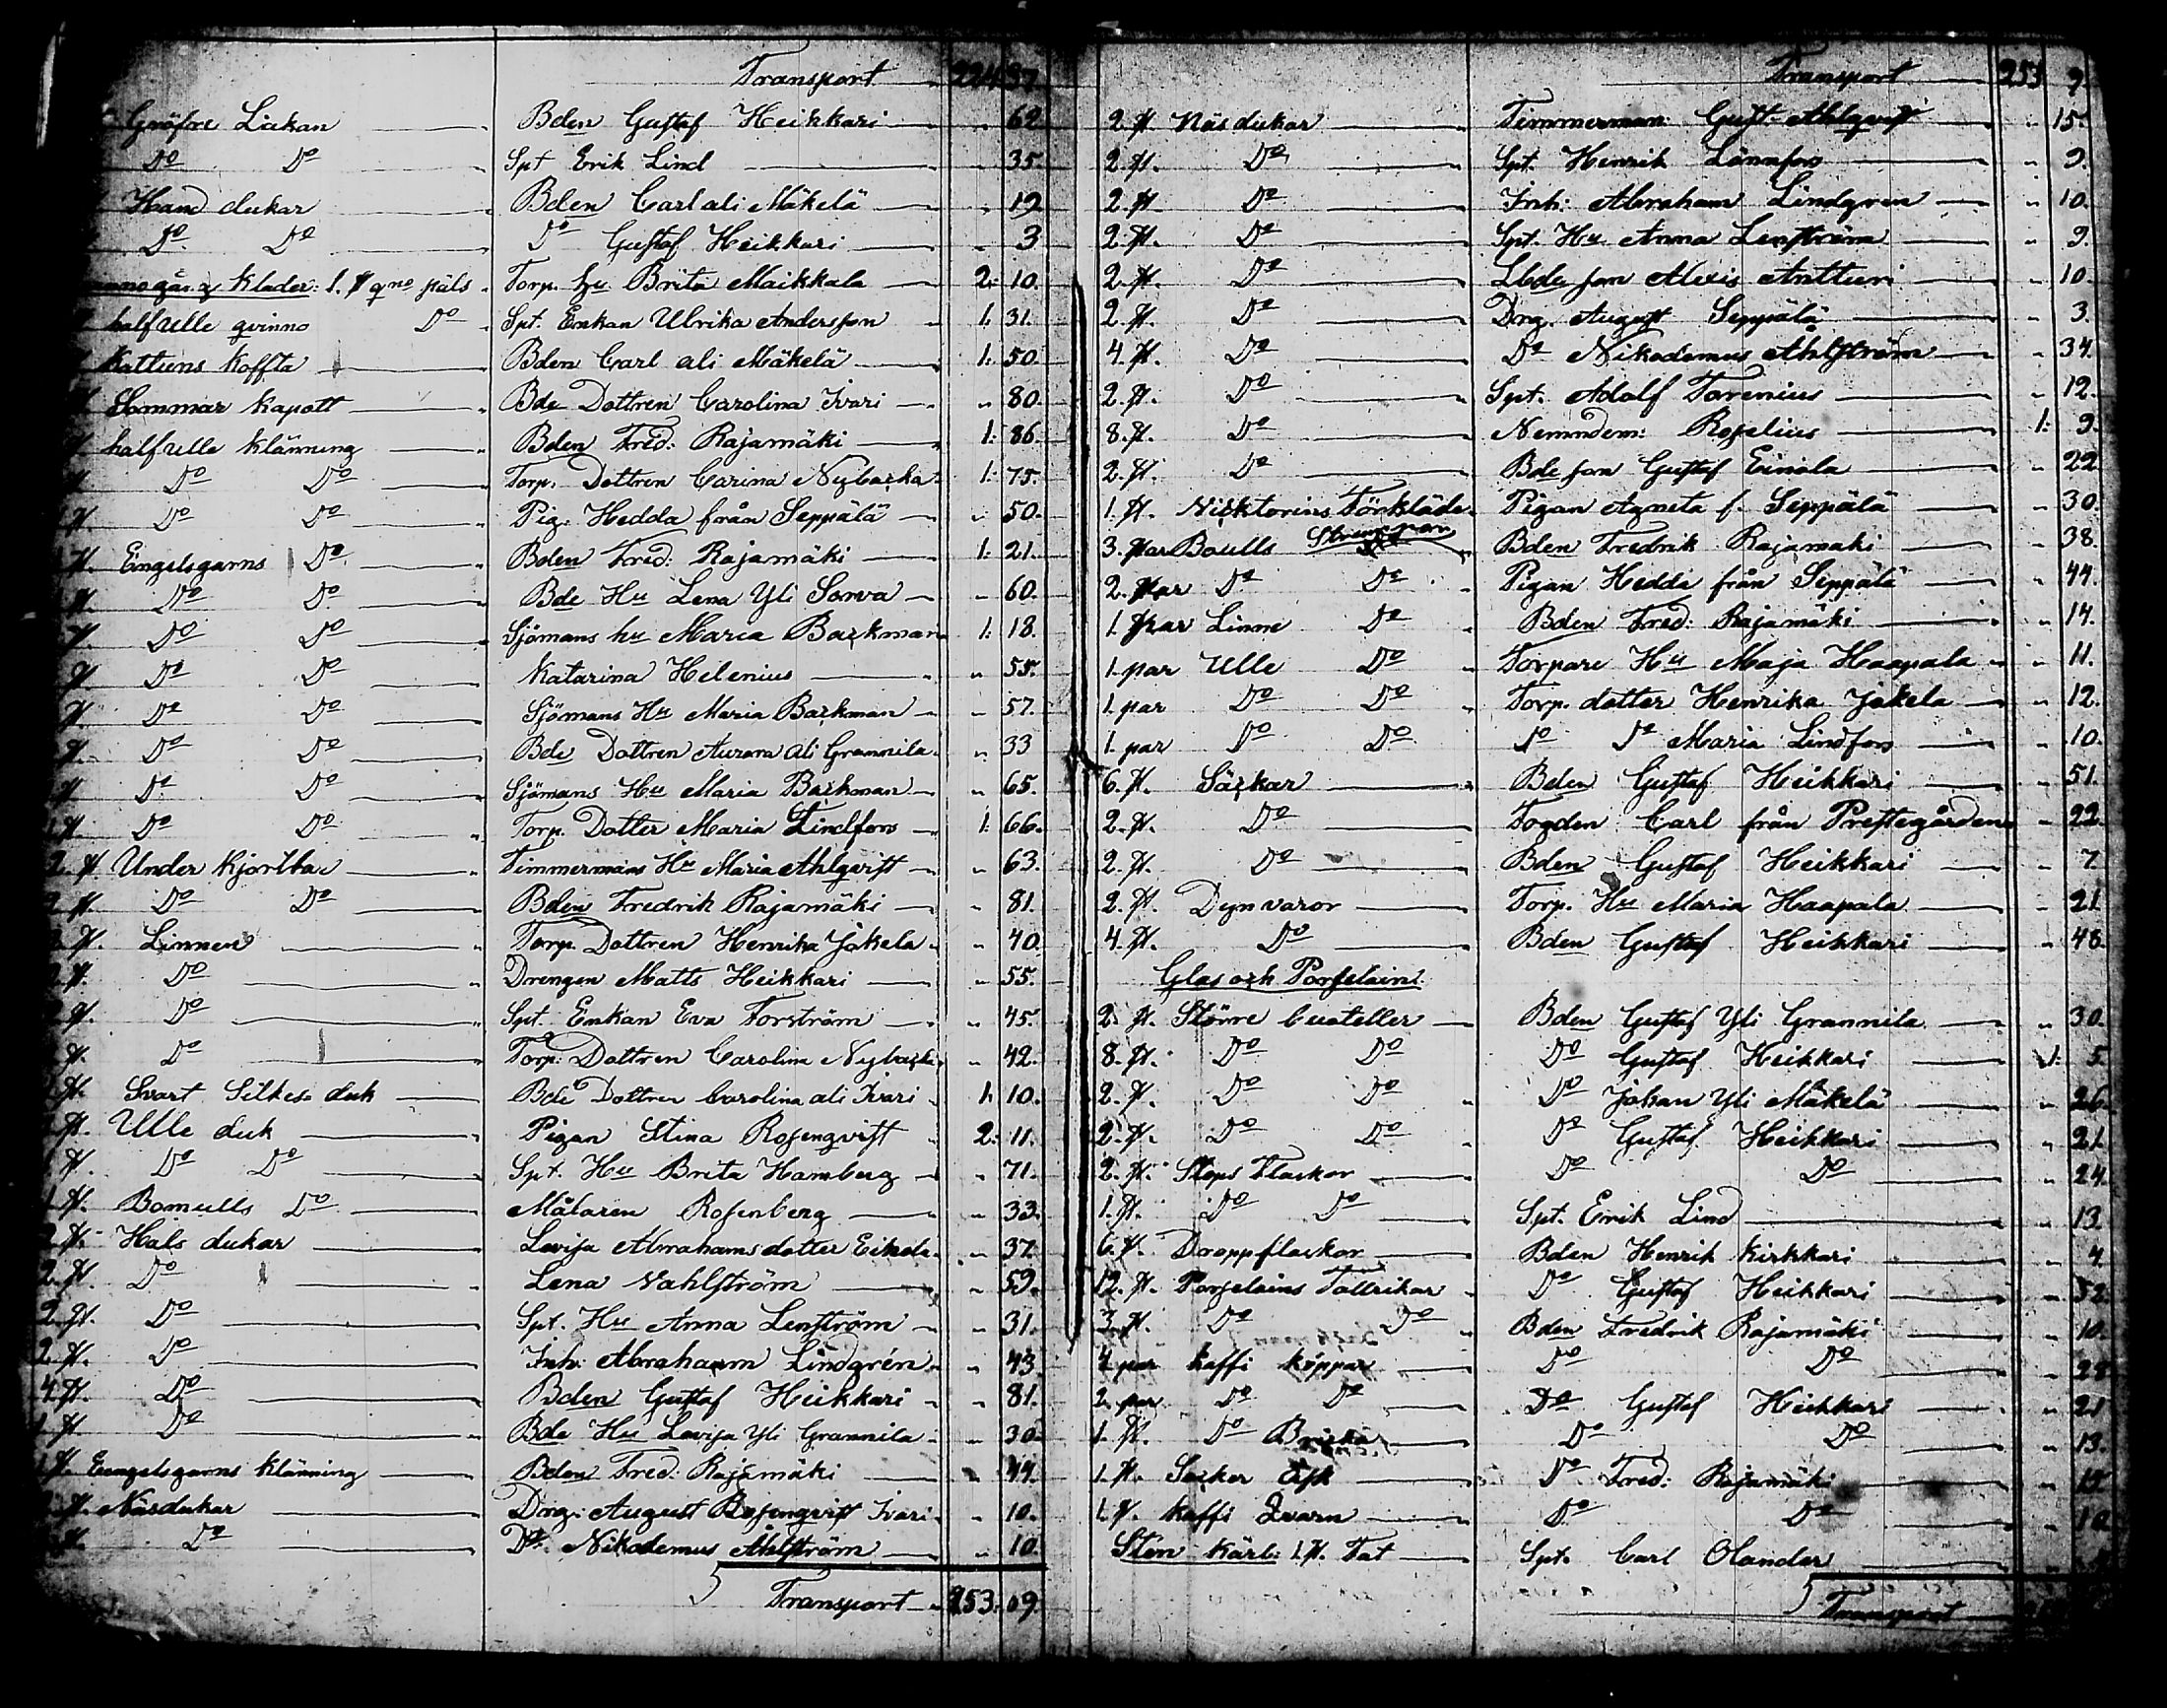 Transport 224 37
Gröfre Lakan Bden Gustaf Heikkari " 62
Do Do Spt Erik Lind " 35
Hand dukar Bden Carl ali Mäkelä " 12
Do Do Do Gustaf Heikkari " 3
Klader: 1. st qno päls Torp. hu Brita Maikkala 2: 10.
half ulle qvinno Do Spt. Enkan Ulrika Andersson 1. 31.
Kattuns Koffta Bden Carl ali Mäkelä 1: 50.
Sommar Kapott Bde Dottren Carolina Ivari " 80.
half ulle klänning Bden Fred: Rajamäki 1: 86.
Do Do Torp. Dottren Carina Nybacka 1: 75.
st Do Do Pig: Hedda från Seppälä " 50.
st. Engelsgarns Do Bden Fred: Rajamäki 1: 21.
st. Do Do Bde Hu Lena Yli Sorva " 60.
st. Do Do Sjömans hu Maria Backman 1: 18.
st Do Do Katarina Helenius " 55.
st. Do Do Sjömans Hu Maria Backman " 57.
st. Do Do Bde Dottren Aurora Ali Grannila " 33
st Do Do Sjömans Hu Maria Backman " 65.
1 st Do Do Torp. Dotter Maria Lindfors 1: 66.
2. st. Under Kjortlar Timmermans Hu Maria Ahlqvist " 63.
2 st. Do Do Bden Fredrik Rajamäki " 81.
st. Linnen Torp. Dottren Henrika Jakela " 40
2 st. Do Drengen Matts Heikkari " 55.
st. Do Spt. Enkan Eva Torström " 45.
st. Do Torp: Dottren Carolina Nybacka " 42.
st. Svart Silkes duk Bde Dottren Carolina ali Ivari 1. 10.
st. Ulle duk Pigan Stina Rosenqvist 2: 11.
st. Do Do Spt. Hu Brita Hamberg " 71.
1 st. Bomulls Do Målaren Rosenberg " 33.
2 st. Hals dukar Lovisa Abrahams dotter Eikola " 37.
2. st. Do Lena Vahlström " 59.
2 st. Do Spt. Hu Anna Lenström " 31.
2. st. Do Inh: Abraham Lindgrén " 43
4. st. Do Bden Gustaf Heikkari " 81.
1. st Do Bde Hu Lovisa Yli Grannila " 30.
1 st. Eengelsgarns Klänning Bden Fred: Rajamäki " 44.
2. st. Näsdukar Drg: August Rosenqvist Ivari " 10.
st. Do Do. Nikodemus Ahlström " 10.
Transport 253: 09.
Transport 253 9
2. st. Näsdukar Timmerman: Gust. Ahlqvist " 15.
2. st. Do Spt. Henrik Lännfors " 9.
2. st. Do Inh: Abraham Lindgren " 10.
2. st. Do Spt. Hu Anna Lenström " 9.
2. st. Do Lbde son Alexis Antturi " 10.
2. st. Do Drg. August Seppälä " 3.
4. st. Do Do Nikodemus Ahlström " 34.
2. st. Do Spt. Adolf Torenius " 12.
8. st. Do Nemndem: Roselius 1: 9.
2. st. Do Bde son Gustaf Einola " 22
1. st. Förkläde Pigan Agneta f. Seppälä " 30.
3. par Boulls Strumpor Bden Fredrik Rajamaki " 38.
2. par Do Do Pigan Hedda från Seppälä " 44.
1. par Linne Do Bden Fred: Rajamäki " 14.
1. par Ulle Do Torpare Hu Maja Haapala " 11.
1. par Do Do Torp. dotter Henrika Jakela " 12.
1. par Do Do Do Do Maria Lindfors " 10.
6. st. Säckar Bden Gustaf Heikkari " 51.
2. st. Do Fogden Carl från Prestegården " 22.
2. st. Do Bden Gustaf Heikkari " 7
2. st. Dynvaror Torp. Hu Maria Haapala " 21
4. st. Do Bden Gustaf Heikkari " 48.
Glas och Porselain
2. st. Större buteller Bden Gustaf Yli Grannila " 30.
8. st. Do Do Do Gustaf Heikkari 1: 5
2. st. Do Do Do Johan Yli Mäkelä " 26.
2. st. Do Do Do Gustaf Heikkari " 21
2. st. Stops flaskor Do Do " 24.
1. st. Do Do Spt. Erik Lind " 13
6. st. Droppflaskor Bden Henrik Kirkkari " 4.
12. st. Porselains Tallrikar Do Gustaf Heikkari " 52.
3. st. Do Do Bden Fredrik Rajamäki " 10.
4 par kaffi koppar Do Do " 28
2. par Do Do Do Gustaf Heikkari " 21
1. st. Do Bricka Do Do " 13.
1. st. Socker Ask Do Fred: Rajamäki " 15.
1. st. kaffi Qvarn Do Do " 10
Sten kärl: 1. st. Fat Spt. Carl Olander
Transport